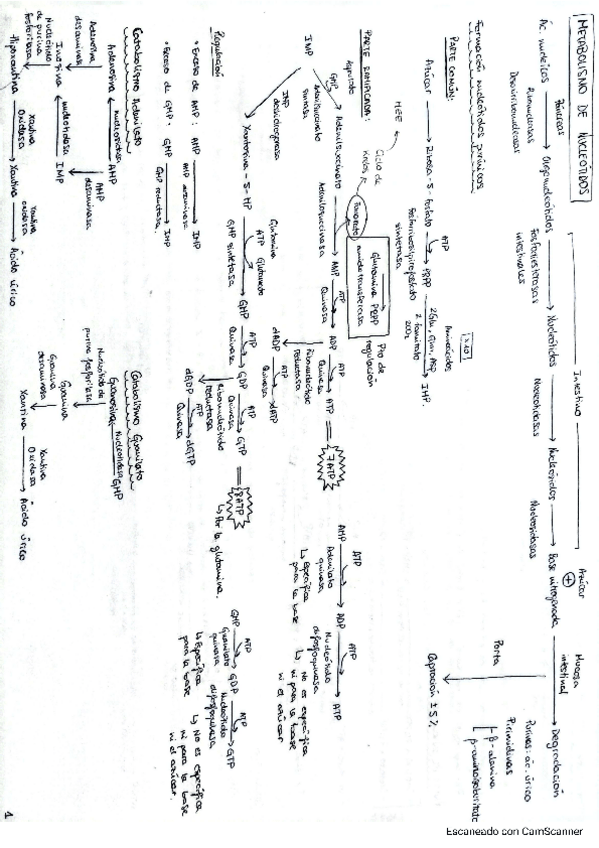 METABOLISMO DE NUCLEÓTIDOS
Intestino
Ác. nucleicos → Oligonucleótidos → Nucleótidos → Nucleósidos → Base nitrogenada → Degradación
Páncreas
Ribonucleasas
Desoxirribonucleasas
Fosfodiesterasas
intestinales
Nucleotidasas
Nucleosidasas
Azúcar
+
Mucosa
intestinal
Purinas: ác. úrico
Pirimidinas
β-alanina
β-aminoisobutirato
Porta
Captación ± 5%
Formación nucleótidos púricos
PARTE COMÚN:
Azúcar → Ribosa-5-fosfato → PRPP → IMP.
ATP
sintetasa
Aminoácidos,
2Glu, Gln, Asp
2 formiato
Glutamina PRPP
amidotransferasa
Pto de
regulación
PARTE RAMIFICADA:
Ciclo de
Krebs
Fumarato
IMP
Aspartato
GTP
Adenilsuccinato
sintasa
Adenilsuccinato → AMP → ADP → ATP = 7 ATP
Adenilsuccinasa
ATP
Quinasa
ATP
Quinasa
Ribonucleótido
reductasa
dADP → dATP
ATP
Quinasa
IMP
deshidrogenasa
Xantosina-5-MP → GMP → GDP → GTP = 8 ATP
Glutamina
ATP
Glutamato
GMP sintetasa
ATP
Quinasa
ATP
Quinasa
↳ Por la glutamina.
ribonucleótido
reductasa
dGDP → dGTP
ATP
Quinasa
AMP → ADP → ATP
ATP
Adenilato
quinasa
↳ Específica
para la base
ATP
Nucleótido
difosfoquinasa
↳ No es específica
ni para la base
ni el azúcar
GMP → GDP → GTP
ATP
Guanilato
quinasa
↳ Específica
para la base
ATP
Nucleótido
difosfoquinasa
↳ No es específica
ni para la base
ni el azúcar.
Regulación
· Exceso de AMP: AMP → IMP
AMP desaminasa
· Exceso de GMP: GMP → IMP
GMP reductasa
Catabolismo Adenilato
Adenosina ← AMP
Nucleotidasa
Adenosina
desaminasa
AMP
desaminasa
Inosina ← IMP
nucleotidasa
Nucleósido
de purina
fosforilasa
Hipoxantina → Xantina → Ácido úrico
Xantina
Oxidasa
Xantina
oxidasa
Catabolismo Guanilato
Guanosina ← GMP
Nucleotidasa
Nucleósido de
purina fosforilasa
Guanina
Guanina
desaminasa
Xantina → Ácido úrico
Xantina
Oxidasa
1
Escaneado con CamScanner